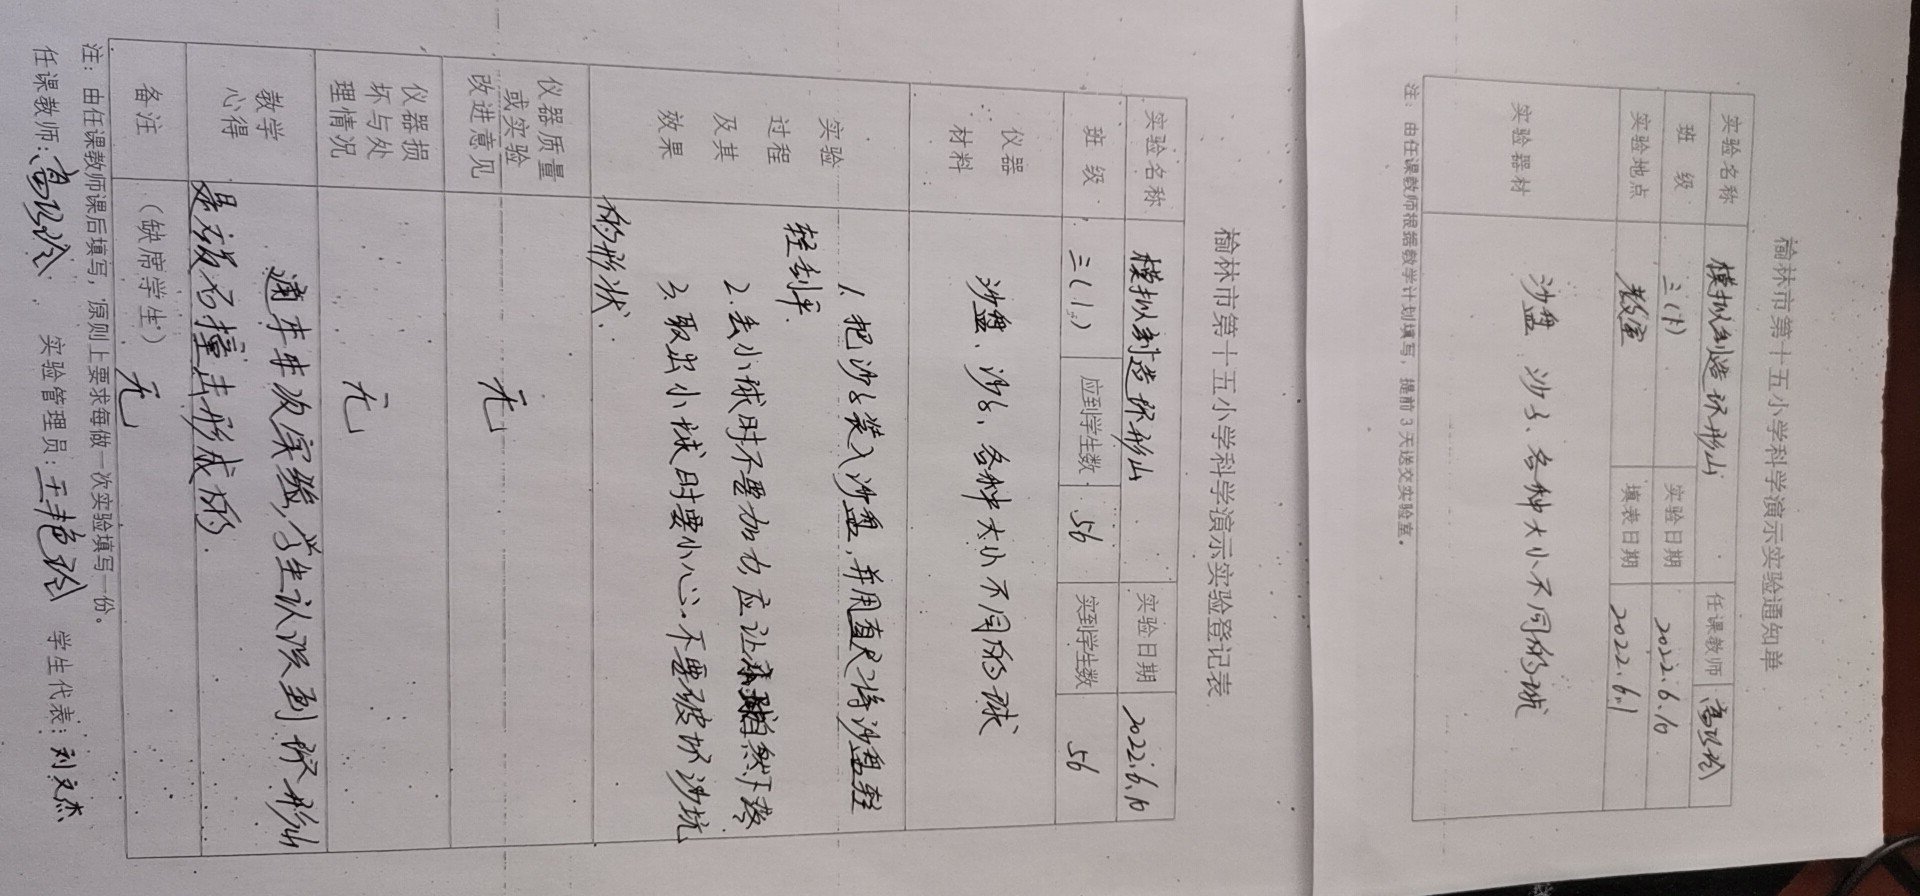 榆林市第十五小学科学演示实验通知单
实验名称 模拟制造环形山 任课教师
班 级 三(1) 实验日期 2022.6.10
实验地点 教室 填表日期 2022.6.1
实验器材 沙盘、沙子、各种大小不同的球
注：由任课教师根据教学计划填写，提前3天送交实验室。
榆林市第十五小学科学演示实验登记表
实验名称 模拟制造环形山 实验日期 2022.6.10
班 级 三(1) 应到学生数 56 实到学生数 56
仪器
材料
沙盘、沙子、各种大小不同的球
实验
过程
及其
效果
1. 把沙子装入沙盘,并用直尺将沙盘轻
轻刮平.
2. 丢小球时不要加力,应让球自然下落
3. 取出小球时要小心.不要破坏沙坑
的形状.
仪器质量
或实验
改进意见
无
仪器损
坏与处
理情况
无
教学
心得
通过本次实验,学生认识到环形山
是被石撞击形成的.
备注
（缺席学生） 无
注：由任课教师课后填写，原则上要求每做一次实验填写一份。
任课教师: 实验管理员: 王艳玲 学生代表: 刘文杰